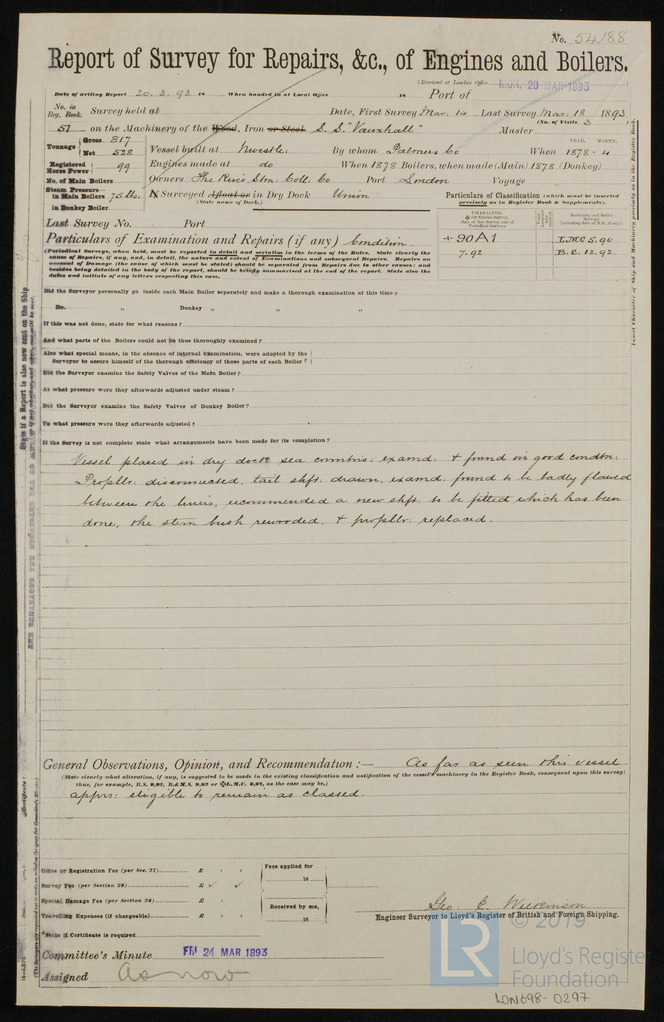 No. 54188
Report of Survey for Repairs, &c., of Engines and Boilers.
(Received at London Office MON. 20 MAR 1893
Date of writing Report 20.3.93 18 When handed in at Local Office 18 Port of
No. in Reg. Book. Survey held at Date, First Survey Mar. 14 Last Survey Mar. 18 1893
(No. of Visits 3
51 on the Machinery of the Wood, Iron or Steel S.S. "Vauxhall" Master
Tonnage Gross 817 Net 528 Vessel built at Nwcstle. By whom Palmers Co When 1878-4
YEAR. MONTH.
Registered Horse Power 99 Engines made at do When 1878 Boilers, when made (Main) 1878 (Donkey)
No. of Main Boilers Owners The River Stm. Coll. Co Port London Voyage
Steam Pressure in Main Boilers 75 lbs. If Surveyed Afloat or in Dry Dock Union
(State name of Dock.)
in Donkey Boiler
Particulars of Classification (which must be inserted precisely as in Register Book & Supplements).
Last Survey No. Port
Particulars of Examination and Repairs (if any) Condition
+ 90A1 L.M.C 5.90
7.92 B.S. 12.92
(Periodical Surveys, when held, must be reported in detail and seriatim in the terms of the Rules. State clearly the
cause of Repairs, if any, and, in detail, the nature and extent of Examinations and subsequent Repairs. Repairs on
account of Damage (the cause of which must be stated) should be separated from Repairs due to other causes; and
besides being detailed in the body of the report, should be briefly summarised at the end of the report. State also the
dates and initials of any letters respecting this case.
Did the Surveyor personally go inside each Main Boiler separately and make a thorough examination at this time?
Do. „ Donkey „ „ „
If this was not done, state for what reasons?
And what parts of the Boilers could not be thus thoroughly examined?
Also what special means, in the absence of internal examination, were adopted by the
Surveyor to assure himself of the thorough efficiency of those parts of each Boiler?
Did the Surveyor examine the Safety Valves of the Main Boiler?
At what pressure were they afterwards adjusted under steam?
Did the Surveyor examine the Safety Valves of Donkey Boiler?
To what pressure were they afterwards adjusted?
If the Survey is not complete state what arrangements have been made for its completion?
Vessel placed in dry dock sea conntns: examd. & found in good condtn:
Propllr: disconnected, tail shft. drawn, examd: found to be badly flawed
between the liners, recommended a new shft to be fitted which has been
done, the stern bush rewooded, & propllr: replaced.
General Observations, Opinion, and Recommendation :— As far as seen this vessel
(State clearly what alteration, if any, is suggested to be made in the existing classification and notification of the vessel's machinery in the Register Book, consequent upon this survey:
thus, for example, B.S. 9,97, B.&M.S. 9,97 or L.M.C. 9,97, as the case may be.)
apprs: eligible to remain as classed
Office or Registration Fee (per Sec. 27) £
Survey Fee (per Section 28) £
Special Damage Fee (per Section 28) £
Travelling Expenses (if chargeable) £
Fees applied for 18
Received by me, 18
Geo. E. Wilkinson
Engineer Surveyor to Lloyd's Register of British and Foreign Shipping.
*State if Certificate is required
Committee's Minute FRI 24 MAR 1893
Assigned As now
LR
© 2019
Lloyd's Register
Foundation
LON698-0297
State if a Report is also now sent on the Ship
Insert Character of Ship and Machinery precisely as in the Register Book.